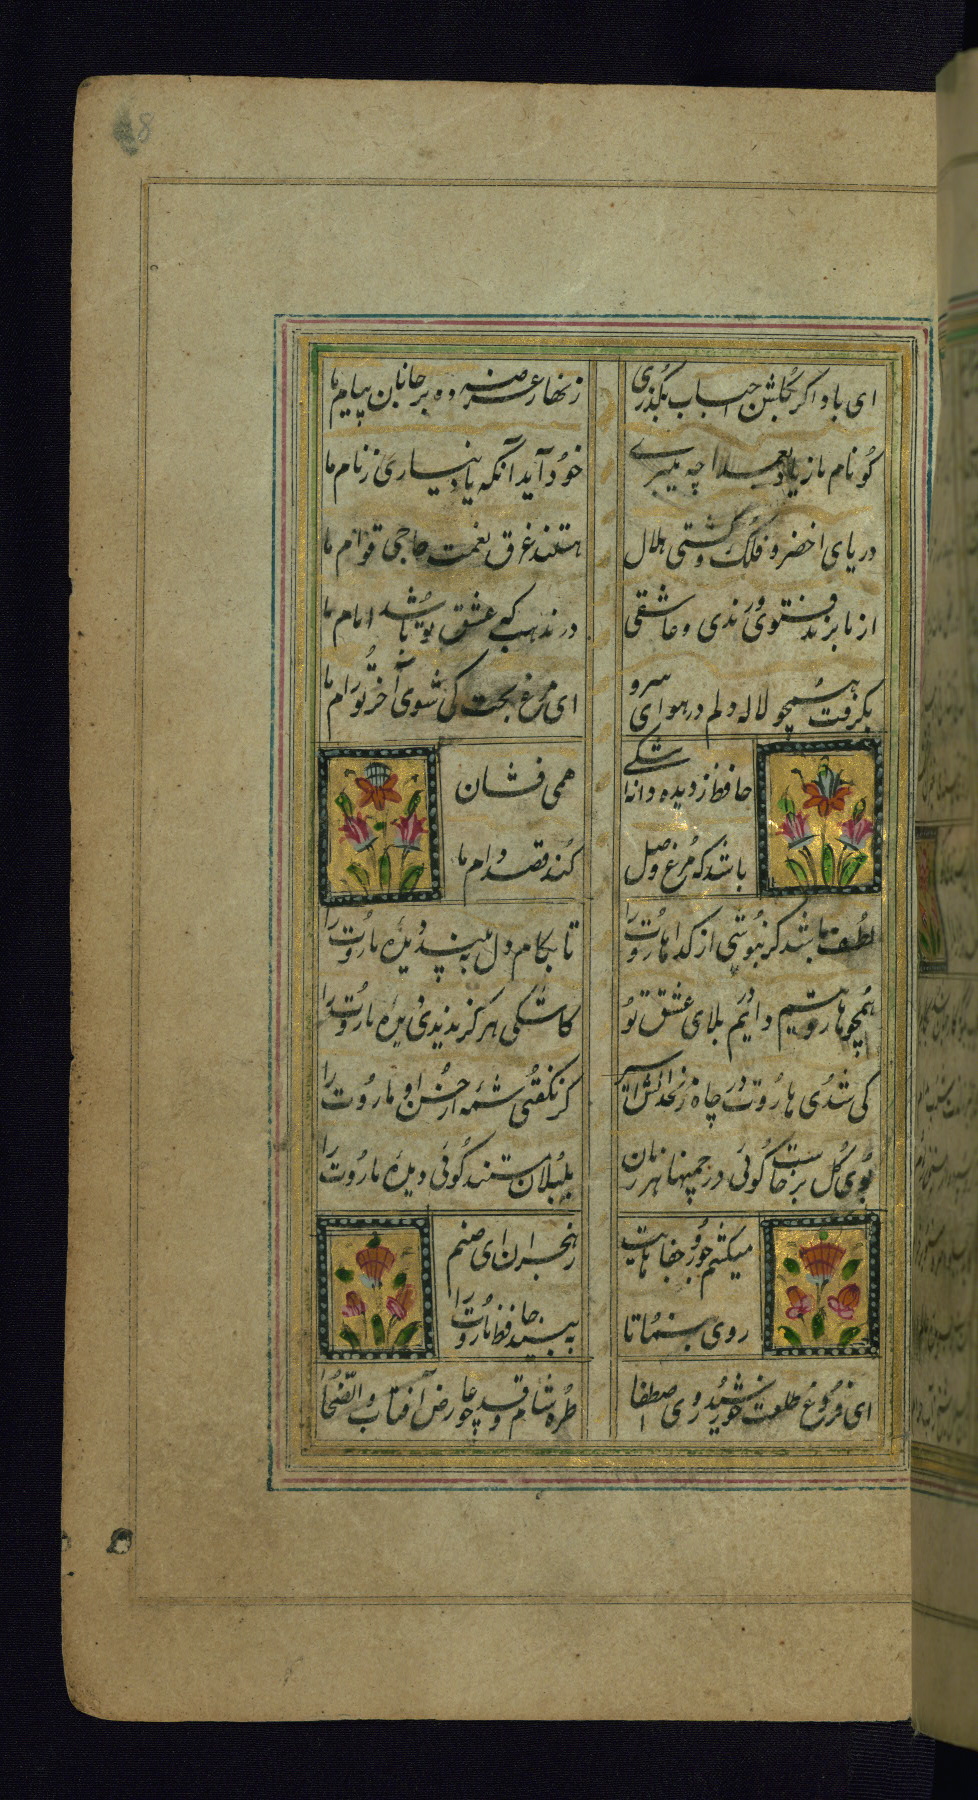 8
ای باد اگر بگلشن احباب بگذری
زنهار عرضه ده بر جانان پیام ما
گو نام ما ز یاد بعمدا چه میبری
خود آید آنکه یاد نیاری ز نام ما
دریای اخضر و فلک و کشتی هلال
هستند غرق نعمت حاجی قوام ما
در مذهب کی عشق تو باشد امام ما
بگرفت همچو لاله دلم در هوای سرو
ای مرغ بخت کی شوی آخر تو رام ما
حافظ ز دیده دانه اشکی
همی فشان
باشد که مرغ وصل
کند قصد دام ما
لطف باشد گر نپوشی از گداها روت را
تا بکام دل به بیند دیده ما روت را
همچو هاروتیم دایم در بلای عشق تو
کاشکی هرگز ندیدی دیده ما روت را
کی شدی هاروت در چاه زنخدانش اسیر
گر نگفتی شمه از حسن او ماروت را
بوی گل برخاست گوئی در چمنها هر زمان
بلبلان مستند گوئی دیده ما روت را
میکشم جور و جفاهایت
ز هجران ای صنم
روی بنما تا
ببیند حافظ ما روت را
ای فروغ طلعت خورشید روی مصطفا
طره شام و قد چو عارض آفتاب والضحا